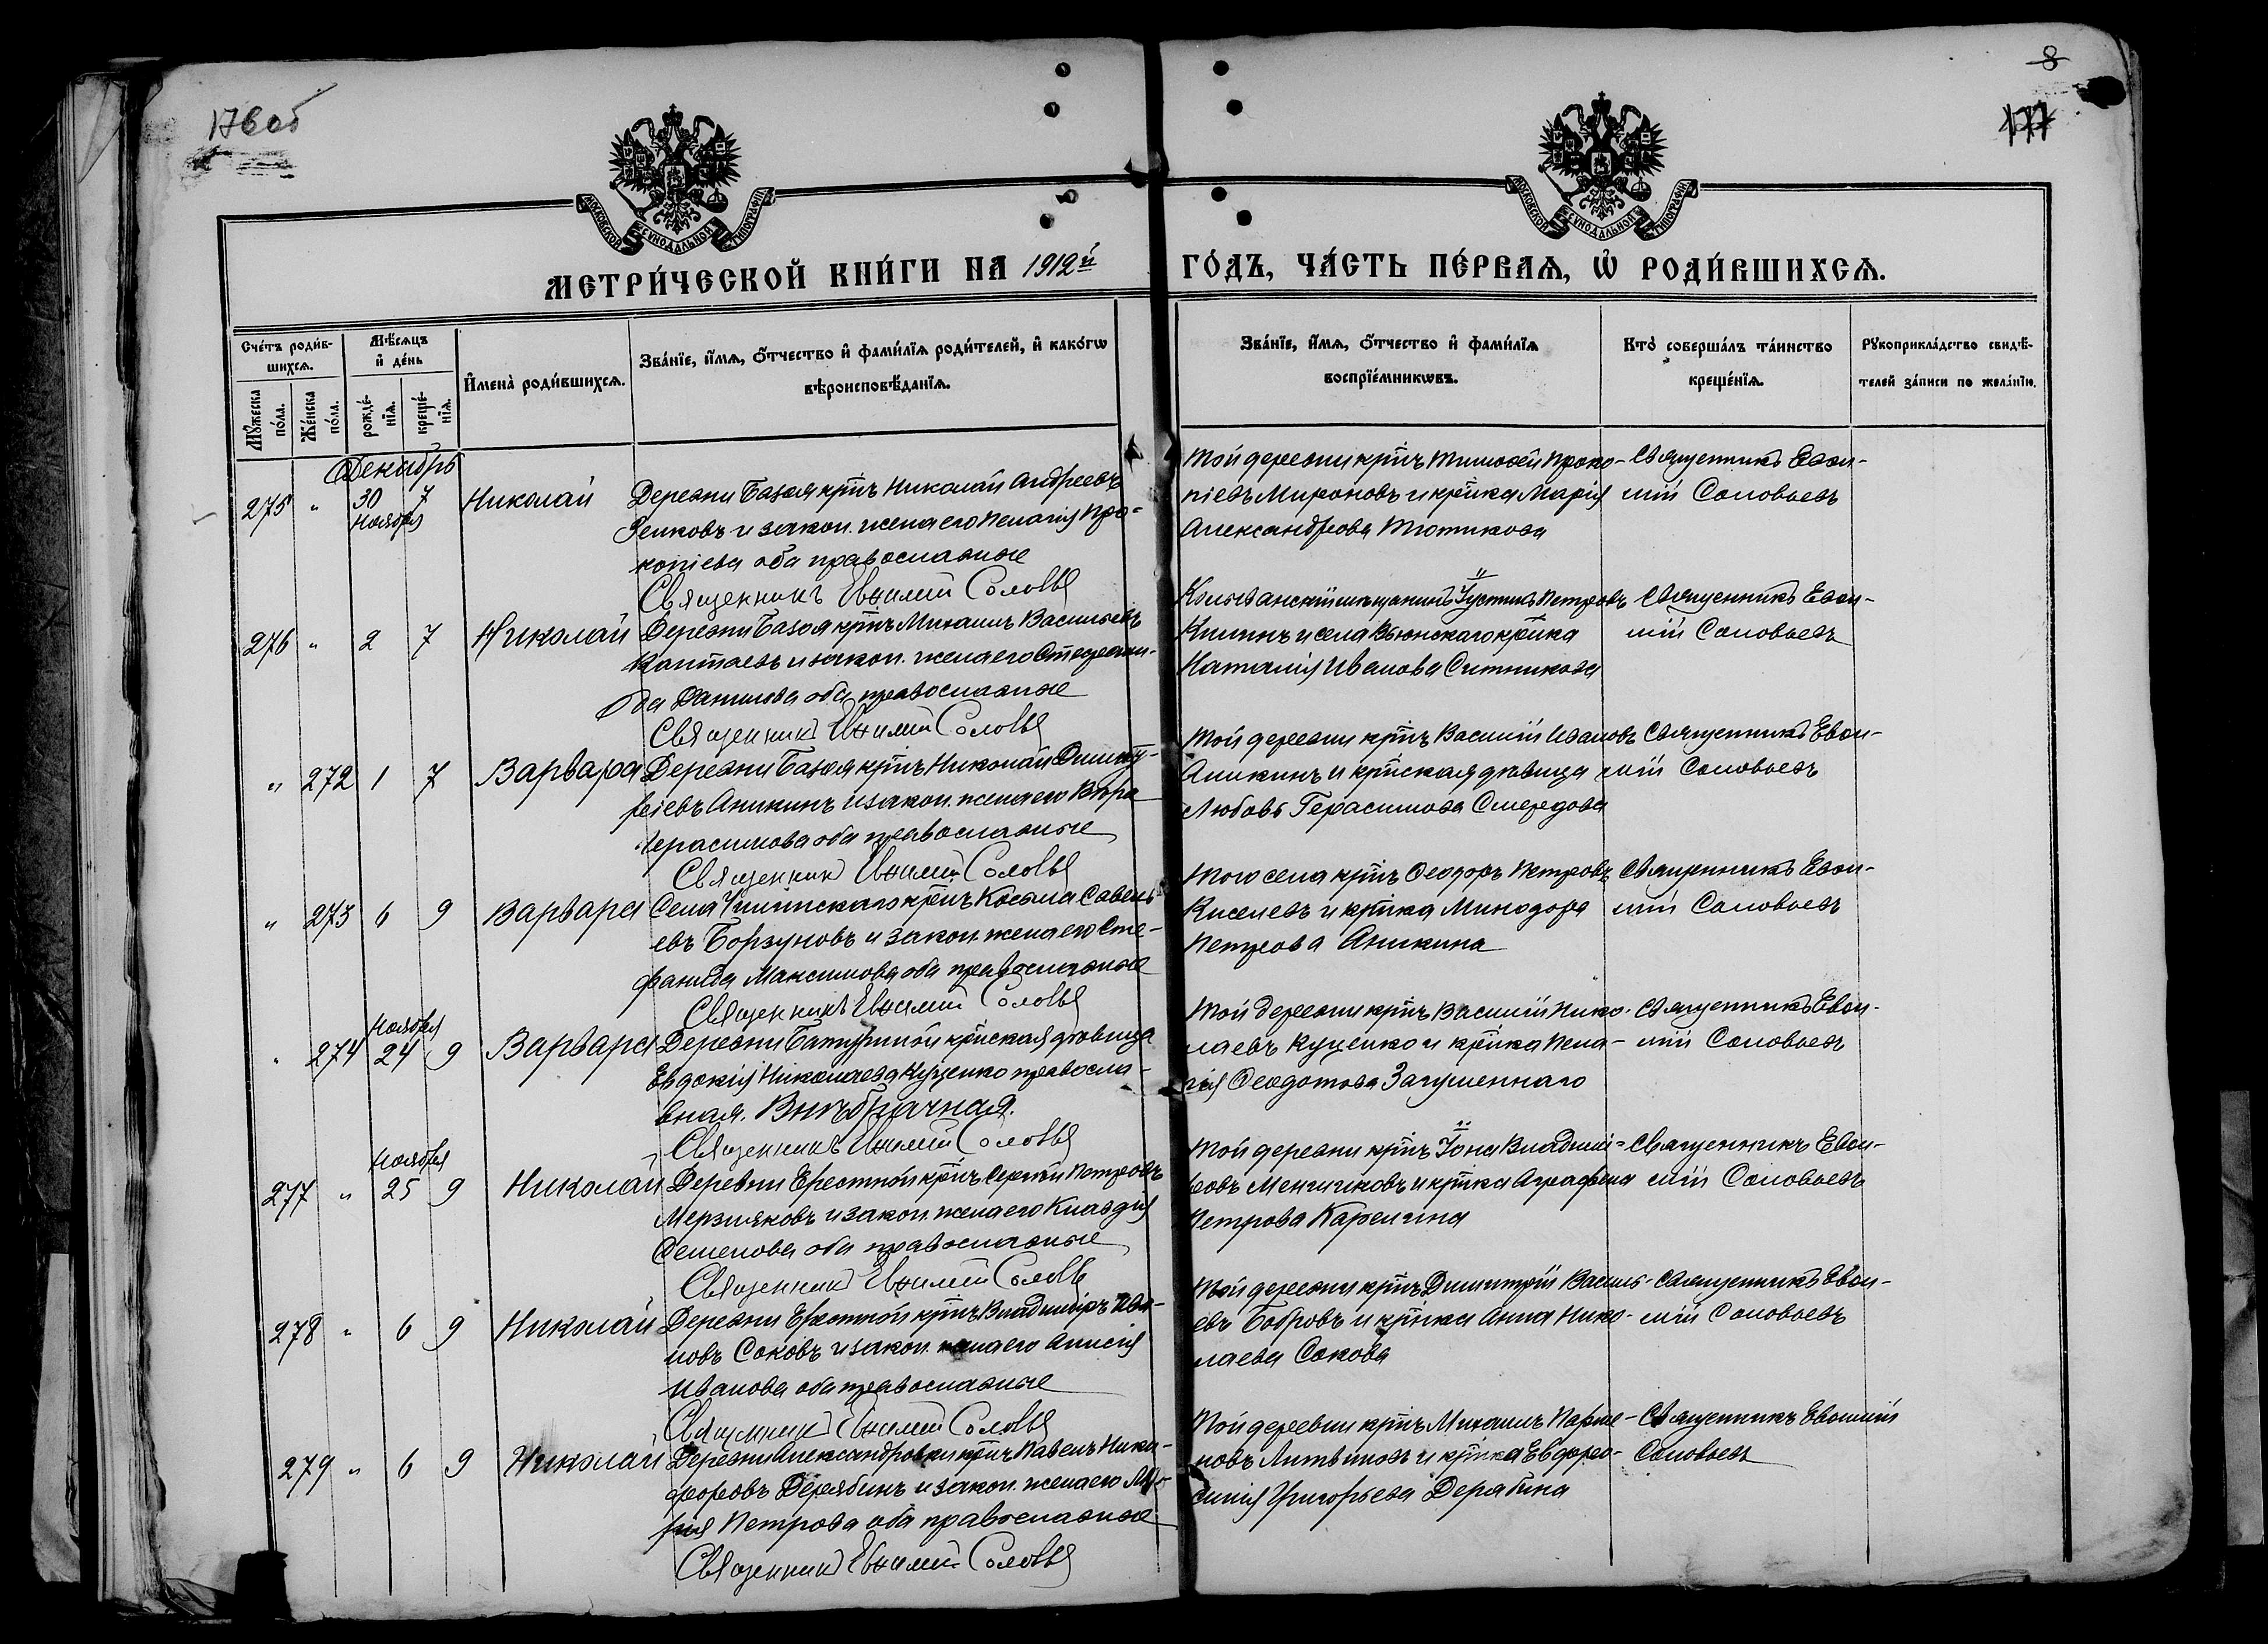 176 об
8
177
МОСКОВСКОЙ СѴНОДАЛЬНОЙ ТИПОГРАФІИ
МОСКОВСКОЙ СѴНОДАЛЬНОЙ ТИПОГРАФІИ
МЕТРИ́ЧЕСКОЙ КНИ́ГИ НА 1912й ГО́ДЪ, ЧА́СТЬ ПЕ́РВАѦ, Ѽ РОДИ́ВШИХСѦ.
Сче́тъ роди́в-
шихсѧ.
Мꙋ́жеска
по́ла.
Же́нска
по́ла.
Мѣ́сѧцъ
и҆ де́нь
рожде́-
нїѧ.
креще́-
нїѧ.
И҆мена̀ роди́вшихсѧ.
Зва́нїе, и҆́мѧ, ѻ҆́тчество и҆ фами́лїѧ роди́телей, и҆ како́гѡ
вѣроисповѣ́данїѧ.
Зва́нїе, и҆́мѧ, ѻ҆́тчество и҆ фами́лїѧ
воспрїе́мникѡвъ.
Кто̀ соверша́лъ та́инство
креще́нїѧ.
Рꙋкоприкла́дство свидѣ́-
телей за́писи по жела́нїю.
Декабрь
275 " 30 7 Николай
Ноября
Деревни Базоя кр̃нъ Николай Андреевъ
и закон. жена его Пелагія Про-
копіева оба православные
Священникъ Евѳимій Соловьев
Той деревни кр̃нъ Тимоѳей Проко-
піевъ Мироновъ и кр̃нка Марія
Александрова Тютикова
Священникъ Евѳи-
мій Соловьевъ
276 " 2 7 Николай
Деревни Базоя кр̃нъ Михаилъ Васильевъ
Каптаевъ и закон. жена его Стефани-
да Данилова оба православные
Священникъ Евѳимій Соловьев
Колыванскій мѣщанинъ Іустинъ Петровъ
Килинъ и села Вьюнскаго кр̃нка
Наталія Иванова Ситникова
Священникъ Евѳи-
мій Соловьевъ
" 272 1 7 Варвара
Деревни Базоя кр̃нъ Николай Димит-
ріевъ Аникинъ и закон. жена его Вѣра
Герасимова оба православные
Священникъ Евѳимій Соловьев
Той деревни кр̃нъ Василій Ивановъ
Аникинъ и кр̃нская дѣвица
Любовь Герасимова Смередова
Священникъ Евѳи-
мій Соловьевъ
" 273 6 9 Варвара
Села Чилинскаго кр̃нъ Косьма Савель-
евъ Борзуновъ и закон. жена его Сте-
фанида Максимова оба православные
Священникъ Евѳимій Соловьев
Того села кр̃нъ Ѳеодоръ Петровъ
Киселевъ и кр̃нка Минодора
Петрова Аникина
Священникъ Евѳи-
мій Соловьевъ
Ноября
" 274 24 9 Варвара
Деревни Батуриной кр̃нская дѣвица
Евдокія Николаева Куценко правосла-
вная. Внѣбрачная.
Священникъ Евѳимій Соловьев
Той деревни кр̃нъ Василій Нико-
лаевъ Куценко и кр̃нка Пела-
гія Ѳеодотова Загуменнаго
Священникъ Евѳи-
мій Соловьевъ
Ноября
277 " 25 9 Николай
Деревни Ерестной кр̃нъ Сергій Петровъ
Мерзляковъ и закон. жена его Клавдія
Семенова оба православные
Священникъ Евѳимій Соловьев
Той деревни кр̃нъ Іона Владимі-
ровъ Менщиковъ и кр̃нка Аграфена
Петрова Карелина
Священникъ Евѳи-
мій Соловьевъ
278 " 6 9 Николай
Деревни Ерестной кр̃нъ Владиміръ Ива-
новъ Соковъ и закон. жена его Анисія
Иванова оба православные
Священникъ Евѳимій Соловьев
Той деревни кр̃нъ Димитрій Василь-
евъ Бобровъ и кр̃нка Анна Нико-
лаева Сокова
Священникъ Евѳи-
мій Соловьевъ
279 " 6 9 Николай
Деревни Александровки кр̃нъ Павелъ Ники-
форовъ Дерябинъ и закон. жена его Ма-
рія Петрова оба православные
Священникъ Евѳимій Соловьев
Той деревни кр̃нъ Михаилъ Парѳе-
новъ Литвиновъ и кр̃нка Евфро-
синія Григорьева Дерябина
Священникъ Евѳимій
Соловьевъ